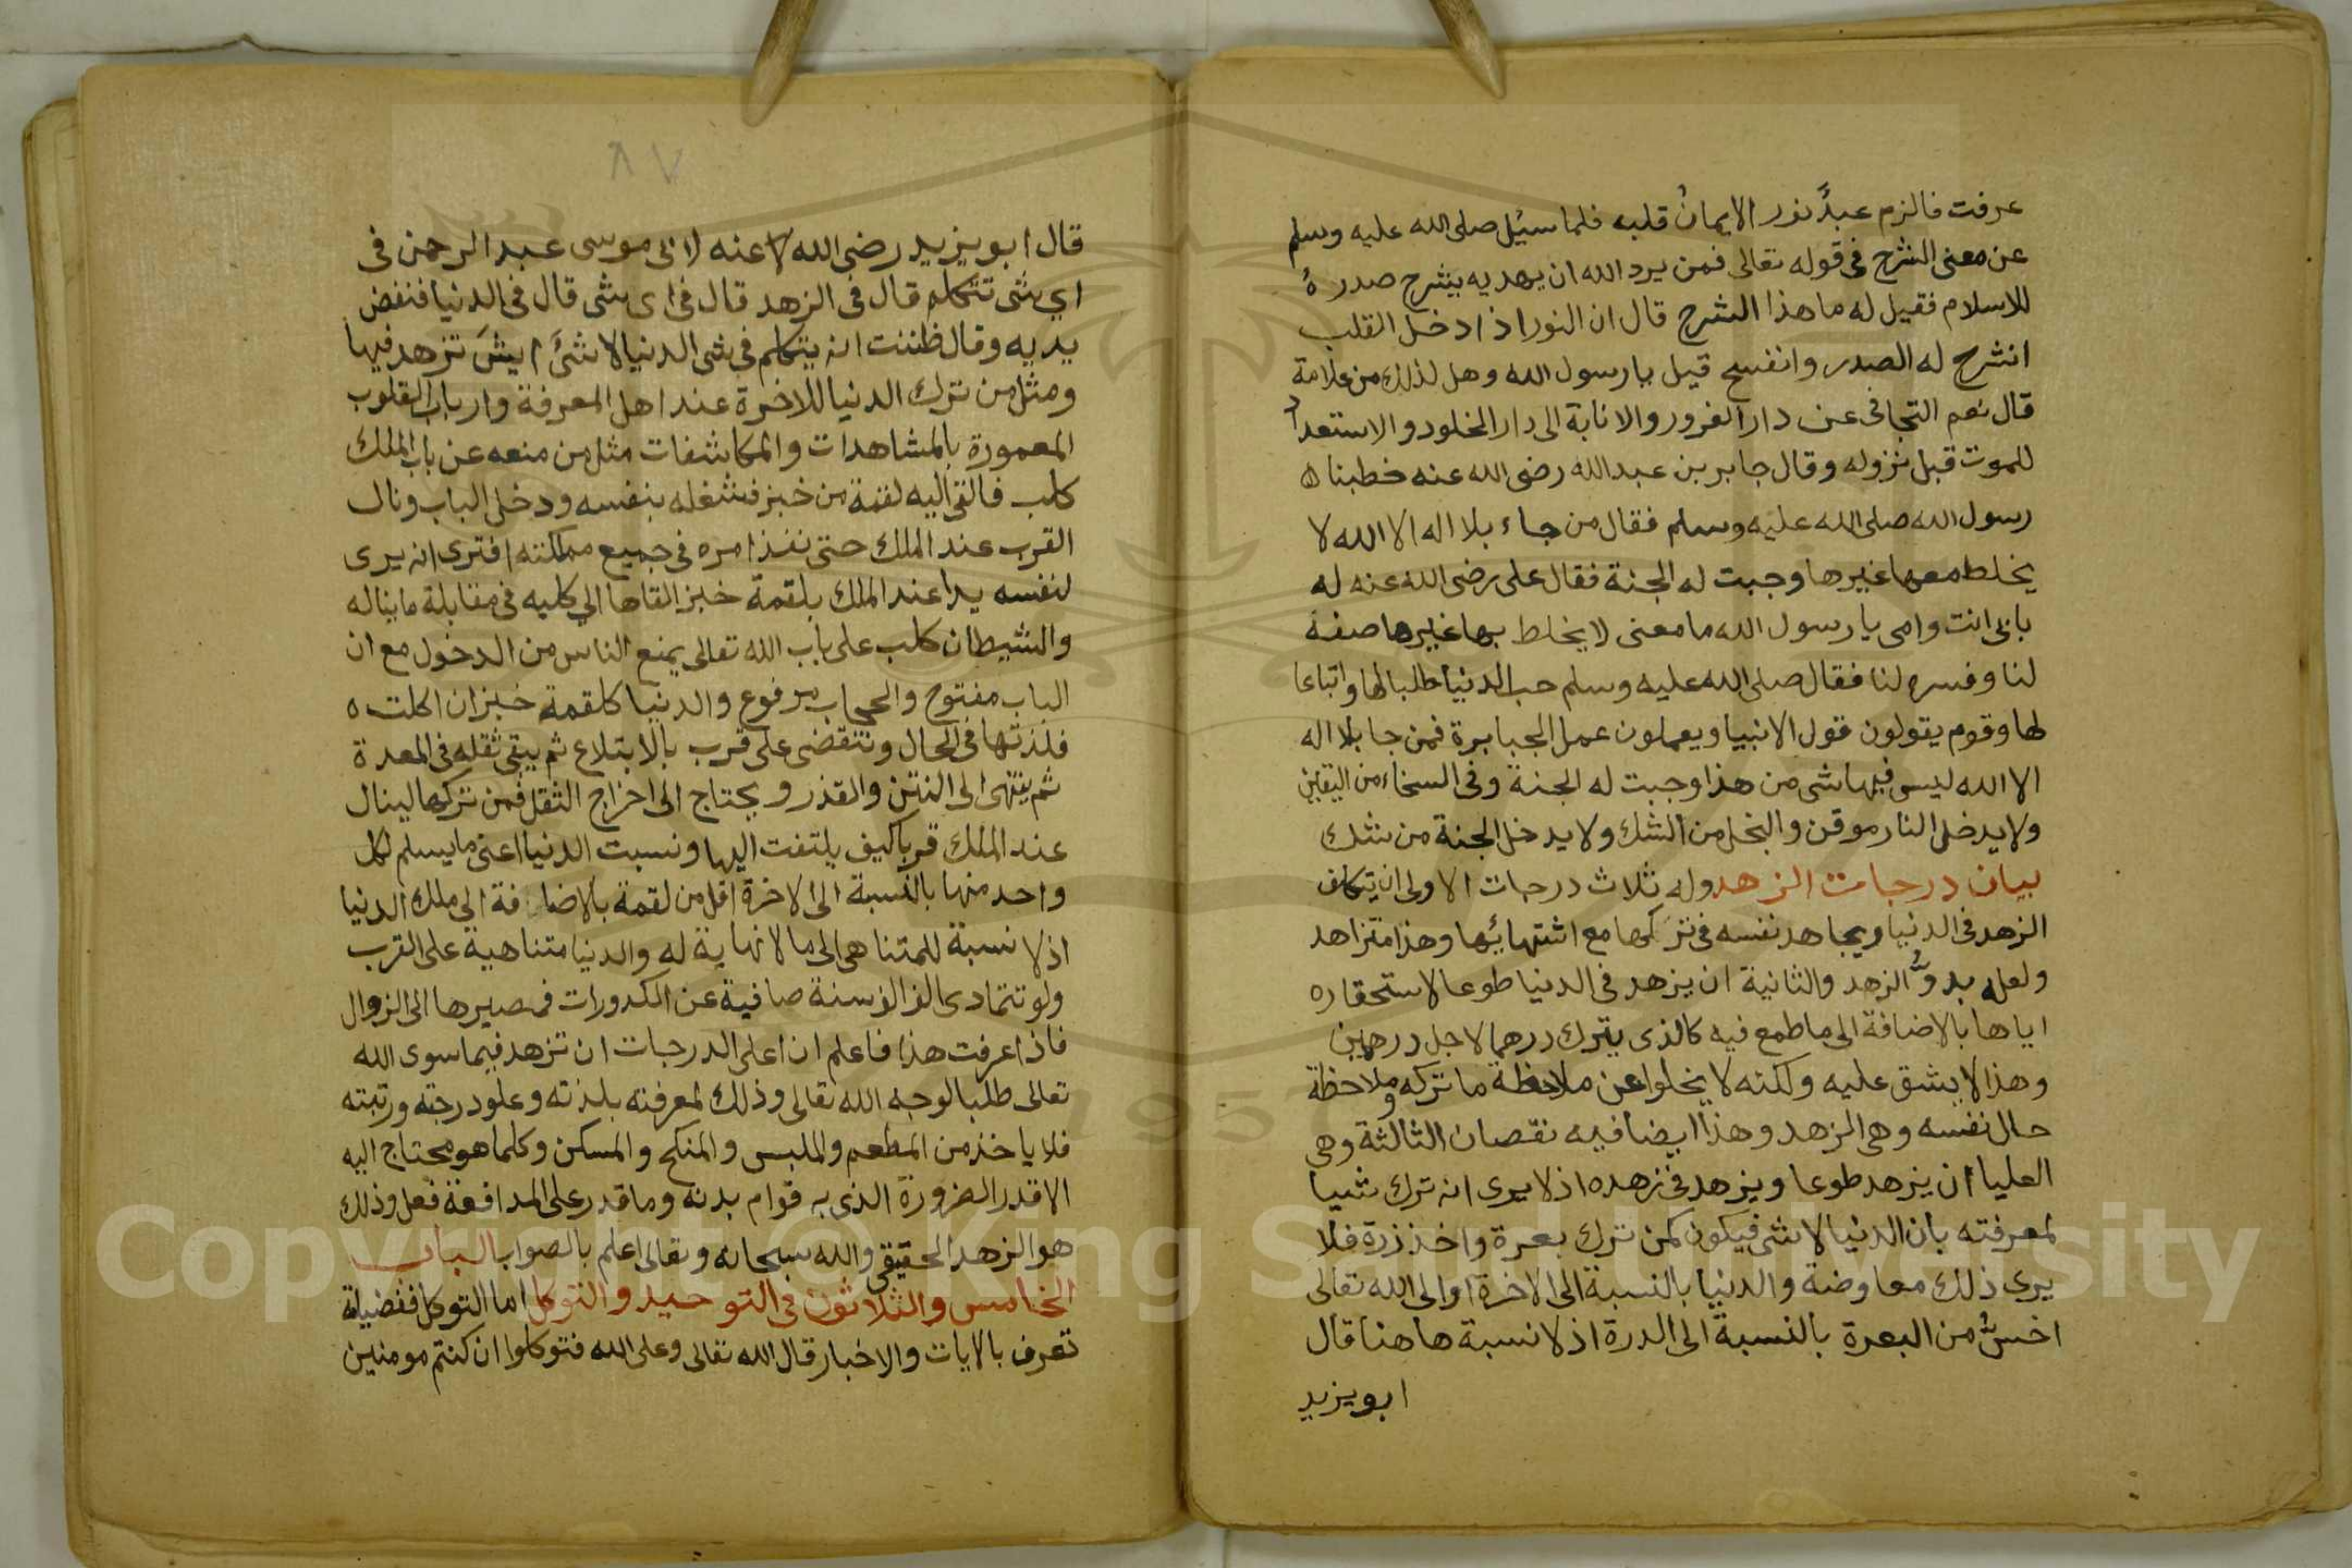 عرفت فالزم عبدٌ نور الايمان قلبه فلما سئل صلى الله عليه وسلم
عن معنى الشرح فى قوله تعالى فمن يرد الله ان يهديه يشرح صدره
للاسلام فقيل له ما هذا الشرح قال ان النور اذا دخل القلب
انشرح له الصدر وانفسح قيل يا رسول الله وهل لذلك من علامة
قال نعم التجافى عن دار الغرور والانابة الى دار الخلود والاستعداد
للموت قبل نزوله وقال جابر بن عبدالله رضى الله عنه خطبنا
رسول الله صلى الله عليه وسلم فقال من جاء بلا اله الا الله لا
يخلط معها غيرها وجبت له الجنة فقال على رضى الله عنه له
بابى انت وامى يا رسول الله ما معنى لا يخلط بها غيرها صفه
لنا وفسره لنا فقال صلى الله عليه وسلم حب الدنيا طلبا لها واتباعا
لها وقوم يقولون قول الانبيا ويعملون عمل الجبابرة فمن جا بلا اله
الا الله ليس فيها شى من هذا وجبت له الجنة وفى السخاء من اليقين
ولا يدخل النار موقن والبخل من الشك ولا يدخل الجنة من شك
بيان درجات الزهد وله ثلاث درجات الاولى ان يتكلف
الزهد فى الدنيا ويجاهد نفسه فى تركها مع اشتهائها وهذا متزاهد
ولعله بدوُّ الزهد والثانية ان يزهد فى الدنيا طوعا لاستحقاره
اياها بالاضافة الى ما طمع فيه كالذى يترك درهما لاجل درهمين
وهذا لا يشق عليه ولكنه لا يخلوا عن ملاحظة ما تركه وملاحظة
حال نفسه وهى الزهد وهذا ايضا فيه نقصان الثالثة وهى
العليا ان يزهد طوعا ويزهد فى زهده اذ لا يرى انه ترك شيا
لمعرفته بان الدنيا لا شى فيكون كمن ترك بعرة واخذ درة فلا
يرى ذلك معاوضة والدنيا بالنسبة الى الاخرة او الى الله تعالى
اخسُّ من البعرة بالنسبة الى الدرة اذ لا نسبة هاهنا قال
ابو يزيد
٨٧
قال ابو يزيد رضى الله عنه لابى موسى عبد الرحمن فى
اى شى تتكلم قال فى الزهد قال فى اى شى قال فى الدنيا فنفض
يديه وقال ظننت انه يتكلم فى شى الدنيا لا شئَ ايشَ تزهد فيها
ومثل من ترك الدنيا للاخرة عند اهل المعرفة وارباب القلوب
المعمورة بالمشاهدات والمكاشفات مثل من منعه عن باب الملك
كلب فالقى اليه لقمة من خبز فشغله بنفسه ودخل الباب ونال
القرب عند الملك حتى نفذ امره فى جميع مملكته افترى انه يرى
لنفسه يدا عند الملك بلقمة خبز القاها الى كلبه فى مقابلة ما يناله
والشيطان كلب على باب الله تعالى يمنع الناس من الدخول مع ان
الباب مفتوح والحجاب مرفوع والدنيا كلقمة خبز ان اكلت
فلذتها فى الحال وتنقضى على قرب بالابتلاع ثم يبقى ثقله فى المعدة
ثم ينتهى الى النتن والقذر ويحتاج الى اخراج الثقل فمن تركها لينال
عند الملك قربا كيف يلتفت اليها ونسبت الدنيا اعنى ما يسلم لكل
واحد منها بالنسبة الى الاخرة اقل من لقمة بالاضافة الى ملك الدنيا
اذ لا نسبة للمتناهى الى ما لا نهاية له والدنيا متناهية على القرب
ولو تتمادى الف الف سنة صافية عن الكدورات فمصيرها الى الزوال
فاذا عرفت هذا فاعلم ان اعلى الدرجات ان تزهد فيما سوى الله
تعالى طلبا لوجه الله تعالى وذلك لمعرفته بلذته وعلو درجته ورتبته
فلا ياخذ من المطعم والملبس والمنكح والمسكن وكلما هو محتاج اليه
الا قدر الضرورة الذى به قوام بدنه وما قدر على المدافعة فعل وذلك
هو الزهد الحقيقى والله سبحانه وتعالى اعلم بالصواب الباب
الخامس والثلاثون فى التوحيد والتوكل اما التوكل ففضيلة
تعرف بالايات والاخبار قال الله تعالى وعلى الله فتوكلوا ان كنتم مومنين
Copyright © King Saud University
1957